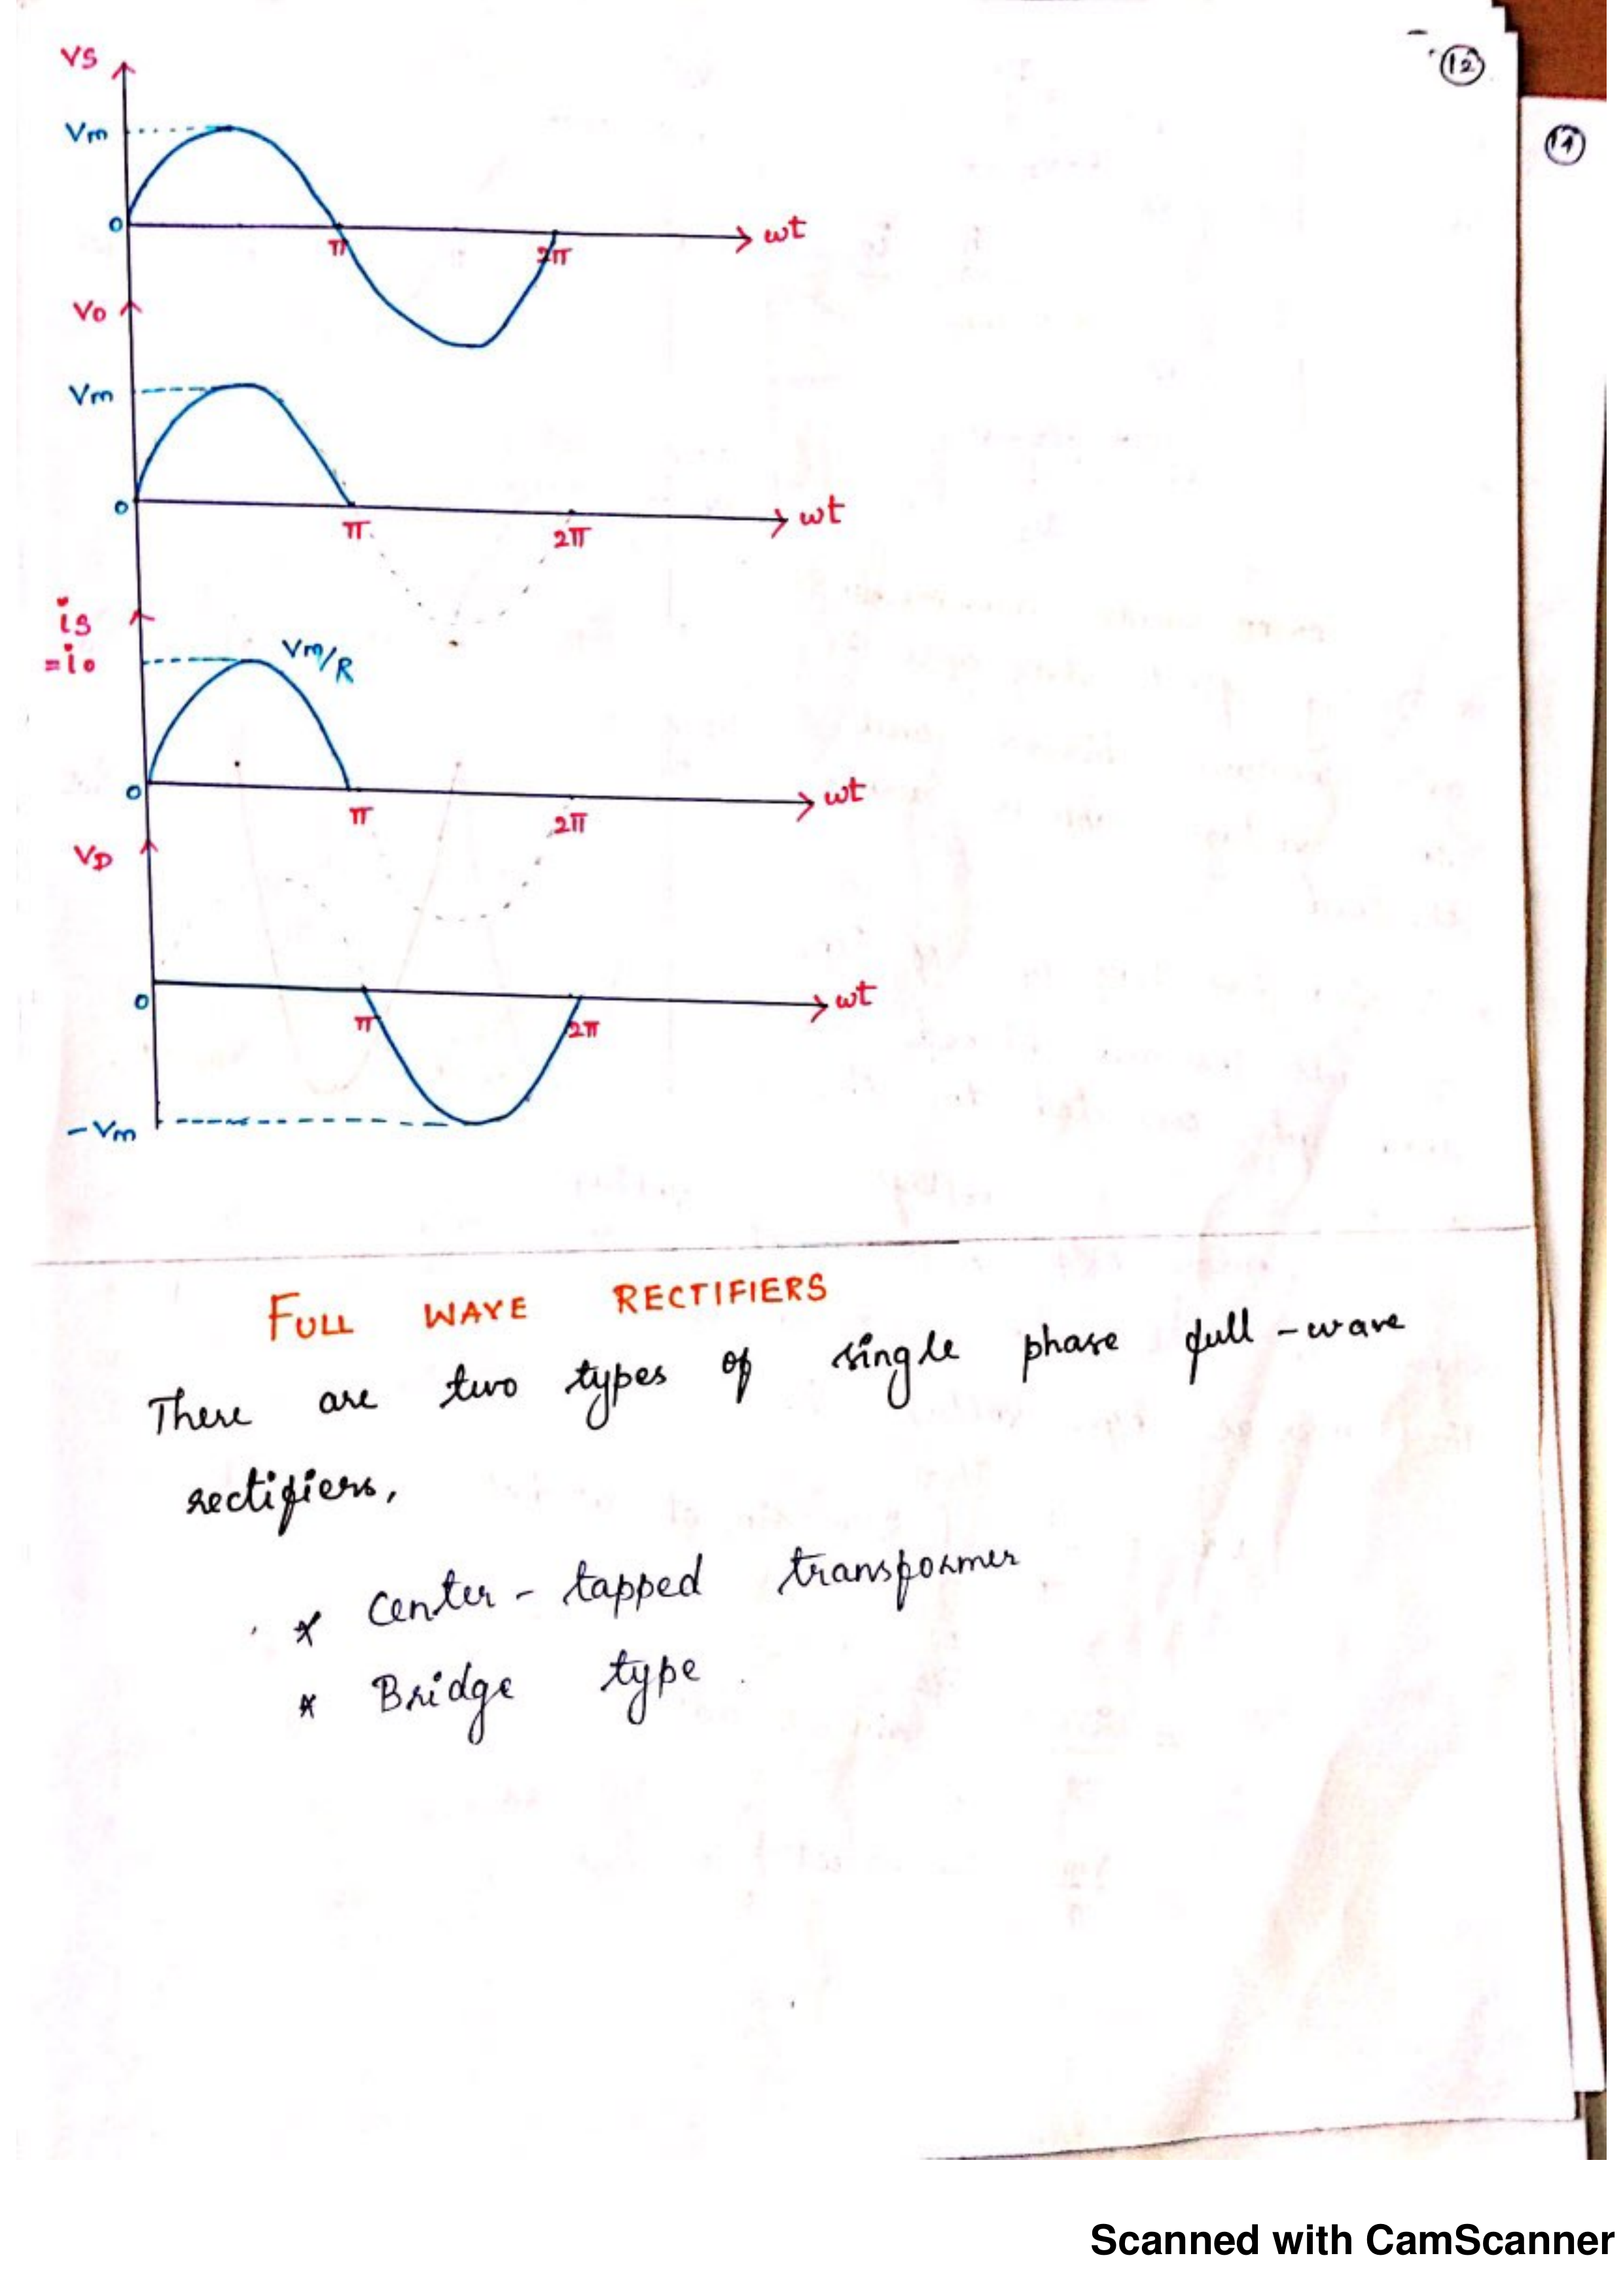 VS
12
Vm
0
π
2π
ωt
Vo
Vm
0
π
2π
ωt
is
=io
Vm/R
0
π
2π
ωt
VD
0
π
2π
ωt
-Vm
FULL WAVE RECTIFIERS
There are two types of single phase full-wave
rectifiers,
* Center-tapped transformer
* Bridge type.
Scanned with CamScanner